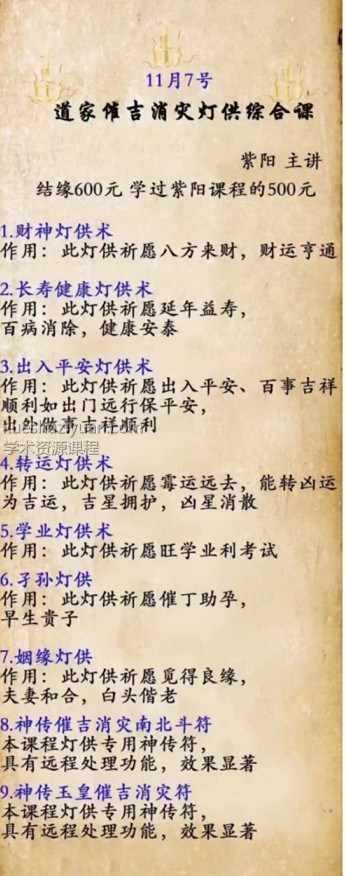 11月7号
道家催吉消灾灯供综合课
紫阳 主讲
结缘600元 学过紫阳课程的500元
1.财神灯供术
作用：此灯供祈愿八方来财，财运亨通
2.长寿健康灯供术
作用：此灯供祈愿延年益寿，
百病消除，健康安泰
3.出入平安灯供术
作用：此灯供祈愿出入平安、百事吉祥
顺利如出门远行保平安，
出处做事吉祥顺利
学术资源课程
4.转运灯供术
作用：此灯供祈愿霉运远去，能转凶运
为吉运，吉星拥护，凶星消散
5.学业灯供术
作用：此灯供祈愿旺学业利考试
6.子孙灯供
作用：此灯供祈愿催丁助孕，
早生贵子
7.姻缘灯供
作用：此灯供祈愿觅得良缘，
夫妻和合，白头偕老
8.神传催吉消灾南北斗符
本课程灯供专用神传符，
具有远程处理功能，效果显著
9.神传玉皇催吉消灾符
本课程灯供专用神传符，
具有远程处理功能，效果显著